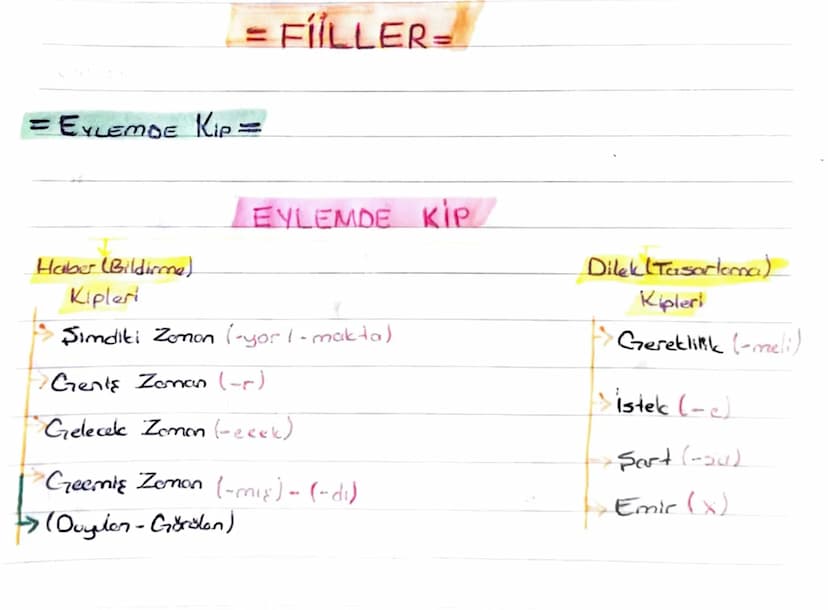 = FİİLLER =
= EYLEMDE KİP =
EYLEMDE KİP
Haber (Bildirme)
Kipleri
Şimdiki Zaman (-yor / -makta)
Geniş Zaman (-r)
Gelecek Zaman (-ecek)
Geçmiş Zaman (-mış) - (-dı)
(Duyulan - Görülen)
Dilek (Tasarlama)
Kipleri
Gereklilik (-meli)
İstek (-e)
Şart (-sa)
Emir (x)